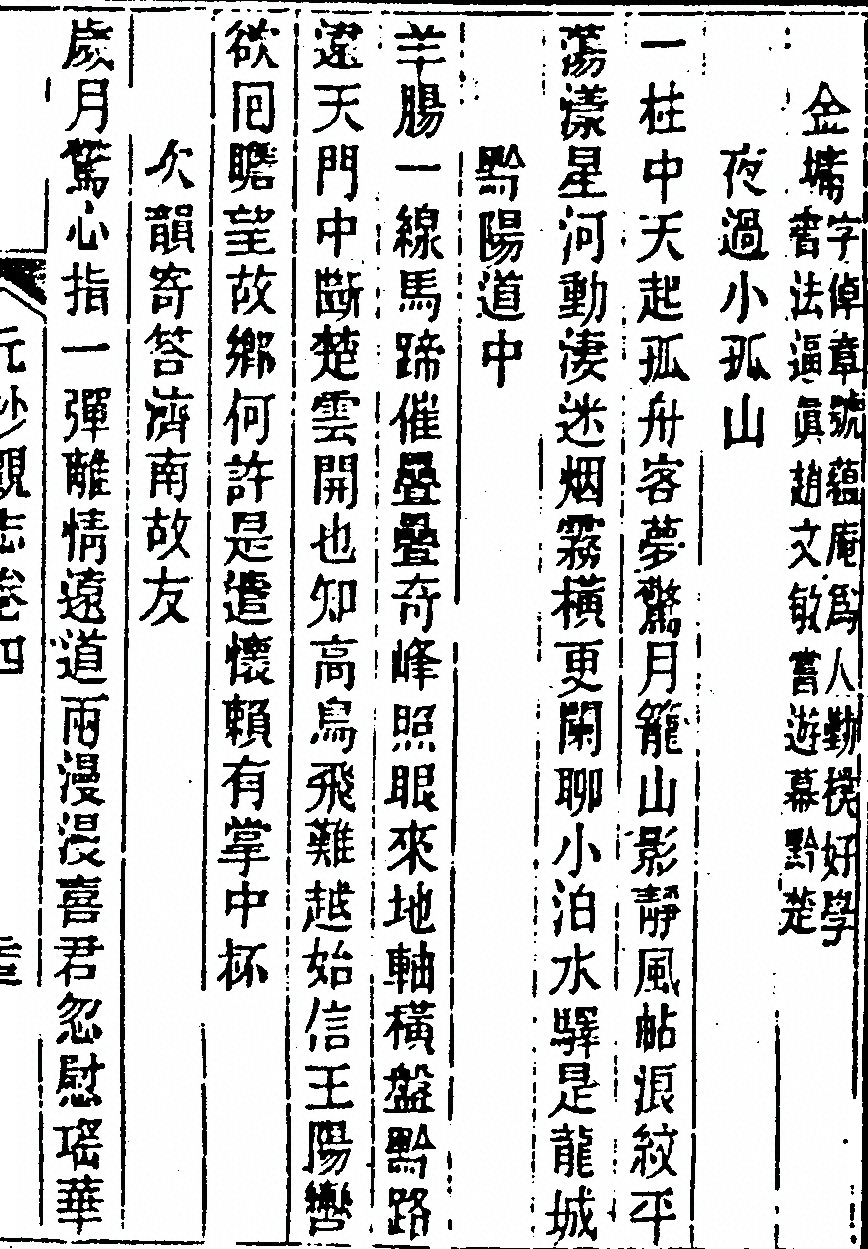 金墉字倬章號蘊庵爲人勤樸好學
書法逼眞趙文敏嘗遊幕黔楚
夜過小孤山
一柱中天起孤舟客夢驚月籠山影靜風帖浪紋平
蕩漾星河動淒迷烟霧橫更闌聊小泊水驛是龍城
黔陽道中
羊腸一線馬蹄催疊疊奇峰照眼來地軸橫盤黔路
遠天門中斷楚雲開也知高鳥飛難越始信王陽轡
欲囘瞻望故鄉何許是遣懷賴有掌中杯
次韻寄答濟南故友
歲月驚心指一彈離情遠道兩漫漫喜君忽慰瑤華
元妙觀志卷四